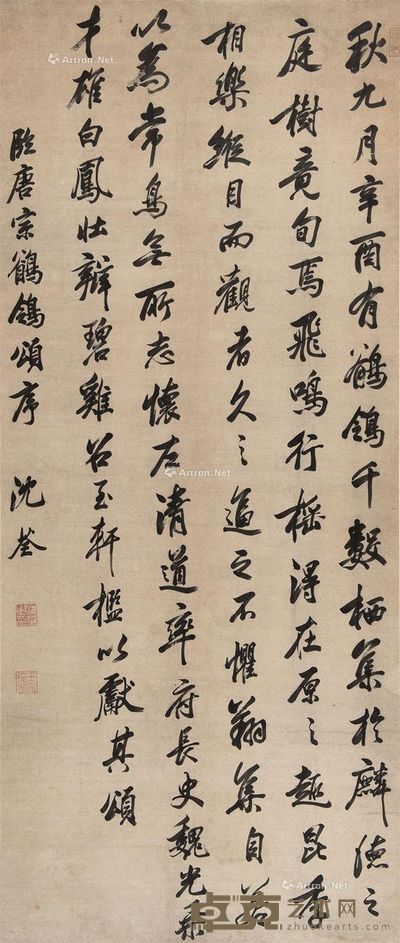 秋九月辛酉有鶺鴒千數栖集於麟德之
庭樹竟旬焉飛鳴行榣得在原之趣昆季
相樂縱目而觀者久之逼之不懼翔集自若
以為常鳥無所志懷左清道率府長史魏光乘
才雄白鳳壯辯碧雞召至軒檻以獻其頌
臨唐宗鶺鴒頌序 沈荃
Artron.Net
卓克艺术网
www.zhuokearts.com